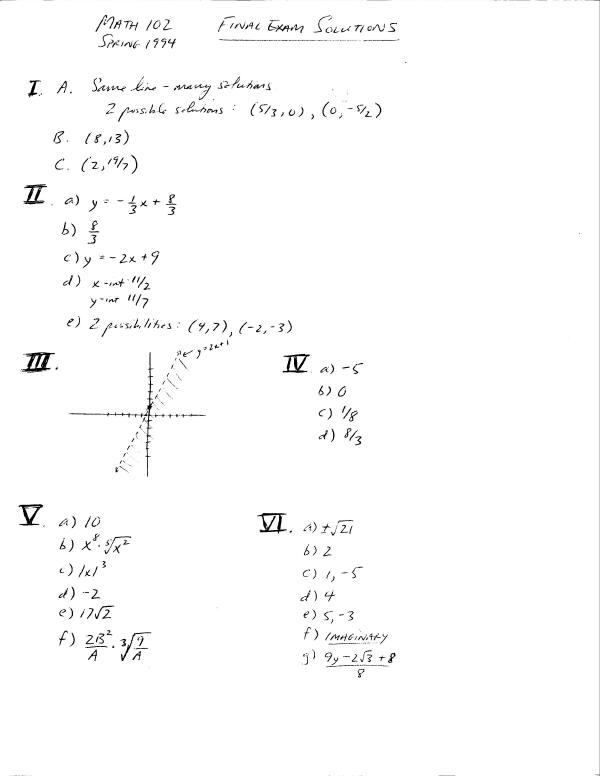 MATH 102 FINAL EXAM SOLUTIONS
SPRING 1994
I. A. Same line - many solutions
2 possible solutions: (5/3, 0), (0, -5/2)
B. (8, 13)
C. (2, 19/7)
II. a) y = -1/3 x + 8/3
b) 8/3
c) y = -2x + 9
d) x-int 11/2
y-int 11/7
e) 2 possibilities: (4, 7), (-2, -3)
III.
y = 2x+1
IV a) -5
b) 0
c) 1/8
d) 8/3
V. a) 10
b) x⁸ · ⁵√x²
c) |x|³
d) -2
e) 17√2
f) 2B²/A · ³√(9/A)
VI. a) ±√21
b) 2
c) 1, -5
d) 4
e) 5, -3
f) IMAGINARY
g) (9y - 2√3 + 8)/8